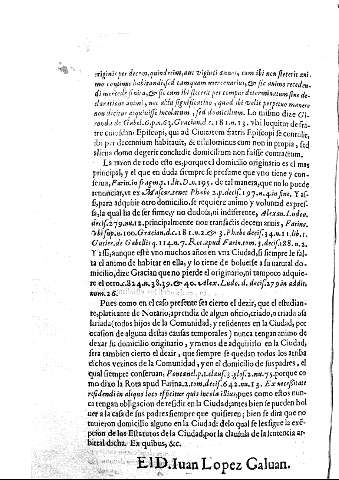 originis per decem, quindecim, aut viginti annis, cum ibi non steterit ani
mo continuò habitandi, sed tamquam mercenarius, & sic animo receden-
di mercede finita, & sic cum ibi steterit per tempus determinatum sine de-
claratione animi, nec alia significatio, quod ibi velit perpetuo manere
non dicitur acquisisse incolatum, sed domicilium. Lo mismo dize Gi-
ronda de Gabel. 6. p. n. 63. Gracian. d. c. 181. n. 23. vbi loquitur de fra-
tre cuiusdam Episcopi, qui ad Ciuitatem fratris Episcopi se contulit,
ibi per decennium habitauit, & in illo
aliena domo degerit concludit domicilium non fuisse contractum.
La razon de todo esto es, porque el domicilio originario es el mas
principal, y el que en duda siempre se presume que vno tiene y con-
serua, Farin. in fragm. 1. lit. D. n. 195. de tal manera, que no lo puede
renunciar, ex Mascar. tenet Phebo 2. p. decis. 197. n. 4. in fine. Y assi,
para adquirir otro domicilio, se requiere animo y voluntad expres-
sa, la qual ha de ser firme, y no dudosa, ni indiferente, Alexan. Ludou.
decis. 279. nu. 12. principalmente non transactis decem annis, Farina.
vbi sup. n. 100. Gracian. d. c. 181. n. 2. & 3. Phebo decis. 34. n. 1. lib. 1.
Gutier. de Gabellis q. 114. n. 7. Rot. apud Farin. tom. 3. decis. 188. n. 2.
Y assi, aunque estè vno muchos años en vna Ciudad, si siempre le fal-
ta el animo de habitar en ella, y lo tiene de boluerse a su natural do-
micilio, dize Gracian que no pierde el originario, ni tampoco adquie-
re el otro, c. 824. n. 38. 39. & 40. Alex. Lud. d. decis. 279. in addit.
num. 26.
Pues como en el caso presente sea cierto el dezir, que el estudian-
te, platicante de Notario, aprendiz de algun oficio, criado, ò criada assa
lariada (todos hijos de la Comunidad, y residentes en la Ciudad, por
ocasion de alguna destas causas temporales) nunca tengan animo de
dexar su domicilio originario, y menos de adquirirlo en la Ciudad,
sera tambien cierto el dezir, que siempre se quedan todos los arriba
dichos vezinos de la Comunidad, y en el domicilio de sus padres, el
qual siempre conseruan, 3. glos. 2. nu. 75. porque co-
mo dixo la Rota apud Farina. 2. tom. decis. 642. nu. 13. Ex necessitate
residendi in aliquo loco efficitur quis incola illius; pues como estos nun-
ca tengan obligacion de residir en la Ciudad, antes bien se pueden bol
uer a la casa de sus padres siempre que quisieren; bien se dirà que no
tuuieron domicilio alguno en la Ciudad: delo qual se les sigue la exẽ-
pcion de los Estatutos de la Ciudad, por la clausula de la sentencia ar-
bitral dicha. Ex quibus, &c.
El D. Iuan Lopez Galuan.